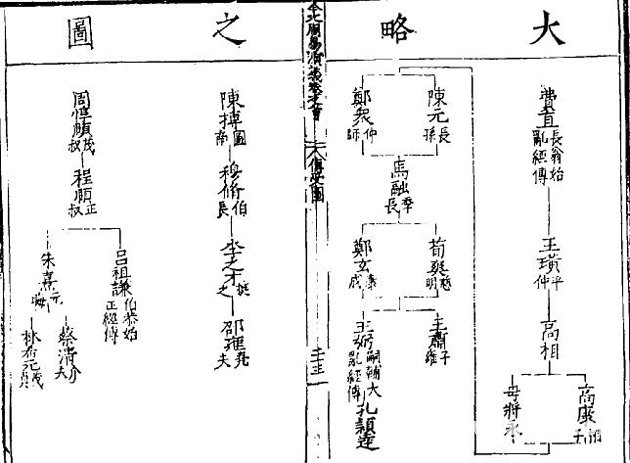 大略之圖
費直 長翁始亂經傳
王璜 平仲
高相
高康 相子
毋將永
陳元 長孫
鄭衆 仲師
馬融 季長
荀爽 慈明
鄭玄 康成
王肅 子雍
王弼 嗣輔大亂經傳
孔穎達
傳受圖
陳摶 圖南
穆脩 伯長
李之才 挺之
邵雍 堯夫
周惇頤 茂叔
程頤 正叔
呂祖謙 伯恭始正經傳
朱熹 元晦
蔡清 介夫
林希元 茂貞